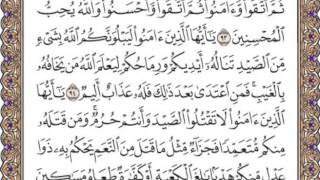 ثُمَّ ٱتَّقَوا۟ وَّءَامَنُوا۟ ثُمَّ ٱتَّقَوا۟ وَّأَحْسَنُوا۟ وَٱللَّهُ يُحِبُّ
ٱلْمُحْسِنِينَ ٩٣ يَـٰٓأَيُّهَا ٱلَّذِينَ ءَامَنُوا۟ لَيَبْلُوَنَّكُمُ ٱللَّهُ بِشَىْءٍ
مِّنَ ٱلصَّيْدِ تَنَالُهُۥٓ أَيْدِيكُمْ وَرِمَاحُكُمْ لِيَعْلَمَ ٱللَّهُ مَن يَخَافُهُۥ
بِٱلْغَيْبِ فَمَنِ ٱعْتَدَىٰ بَعْدَ ذَٰلِكَ فَلَهُۥ عَذَابٌ أَلِيمٌ ٩٤ يَـٰٓأَيُّهَا
ٱلَّذِينَ ءَامَنُوا۟ لَا تَقْتُلُوا۟ ٱلصَّيْدَ وَأَنتُمْ حُرُمٌ وَمَن قَتَلَهُۥ
مِنكُم مُّتَعَمِّدًا فَجَزَآءٌ مِّثْلُ مَا قَتَلَ مِنَ ٱلنَّعَمِ يَحْكُمُ بِهِۦ ذَوَا
عَدْلٍ مِّنكُمْ هَدْيًۢا بَـٰلِغَ ٱلْكَعْبَةِ أَوْ كَفَّـٰرَةٌ طَعَامُ مَسَـٰكِينَ